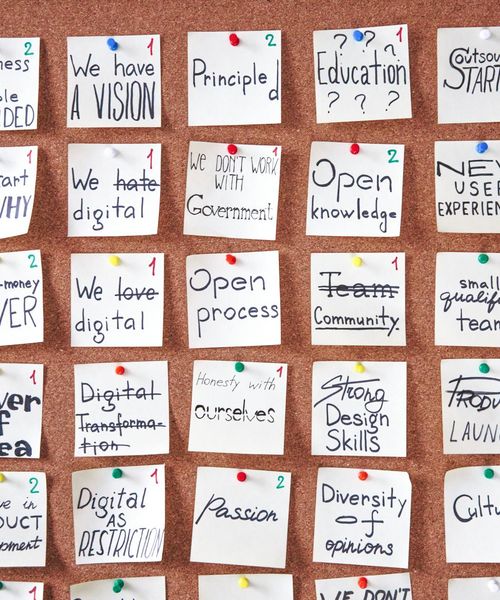 2
ness
le
DED
1
We have
A VISION
2
Principled
1
? ? ?
Education
? ? ?
Outsou
START
1
tart
WHY
1
We hate
digital
1
WE DON'T WORK
WITH
Government
2
Open
knowledge
NEW
USER
EXPERIEN
2
-money
VER
1
We love
digital
Open
process
1
Team
Community
small
qualifi
team
1
ver
f
ea
Digital
Transforma-
tion
1
Honesty with
ourselves
Strong
Design
Skills
PRODU
LAUN
2
ve in
DUCT
opment
1
Digital
AS
RESTRICTION
2
Passion
Diversity
of
opinions
Cultu
1
WE DON'T